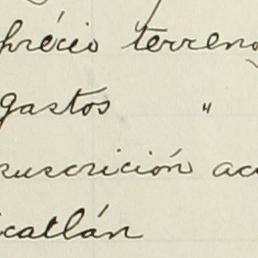 précio terreno
gastos "
suscrición ac
icatlán